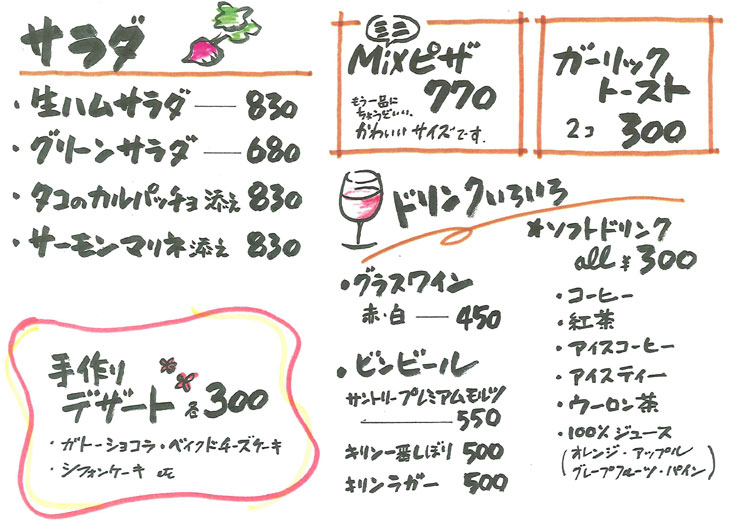 サラダ
・生ハムサラダ — 830
・グリーンサラダ — 680
・タコのカルパッチョ添え 830
・サーモンマリネ添え 830
手作り
デザート 各300
・ガトーショコラ・ベイクドチーズケーキ
・シフォンケーキ etc
ミニ
Mixピザ
770
もう一品に
ちょうどいい、
かわいいサイズです。
ガーリック
トースト
2コ 300
ドリンクいろいろ
・グラスワイン
赤・白 — 450
・ビンビール
サントリープレミアムモルツ
— 550
キリン一番しぼり 500
キリンラガー 500
*ソフトドリンク
all ¥300
・コーヒー
・紅茶
・アイスコーヒー
・アイスティー
・ウーロン茶
・100%ジュース
(オレンジ・アップル
グレープフルーツ・パイン)